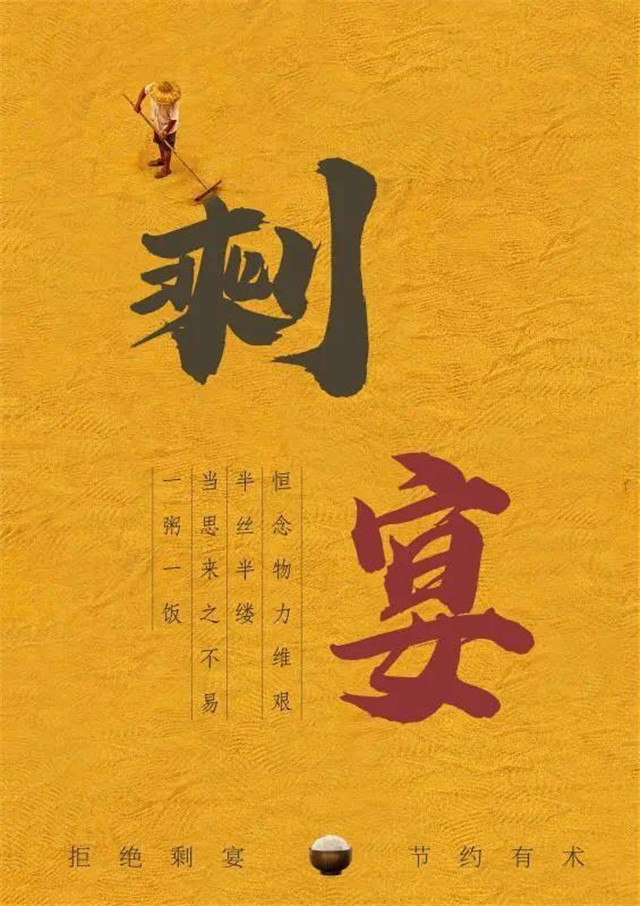 剩
宴
一粥一饭
当思来之不易
半丝半缕
恒念物力维艰
拒绝剩宴
节约有术